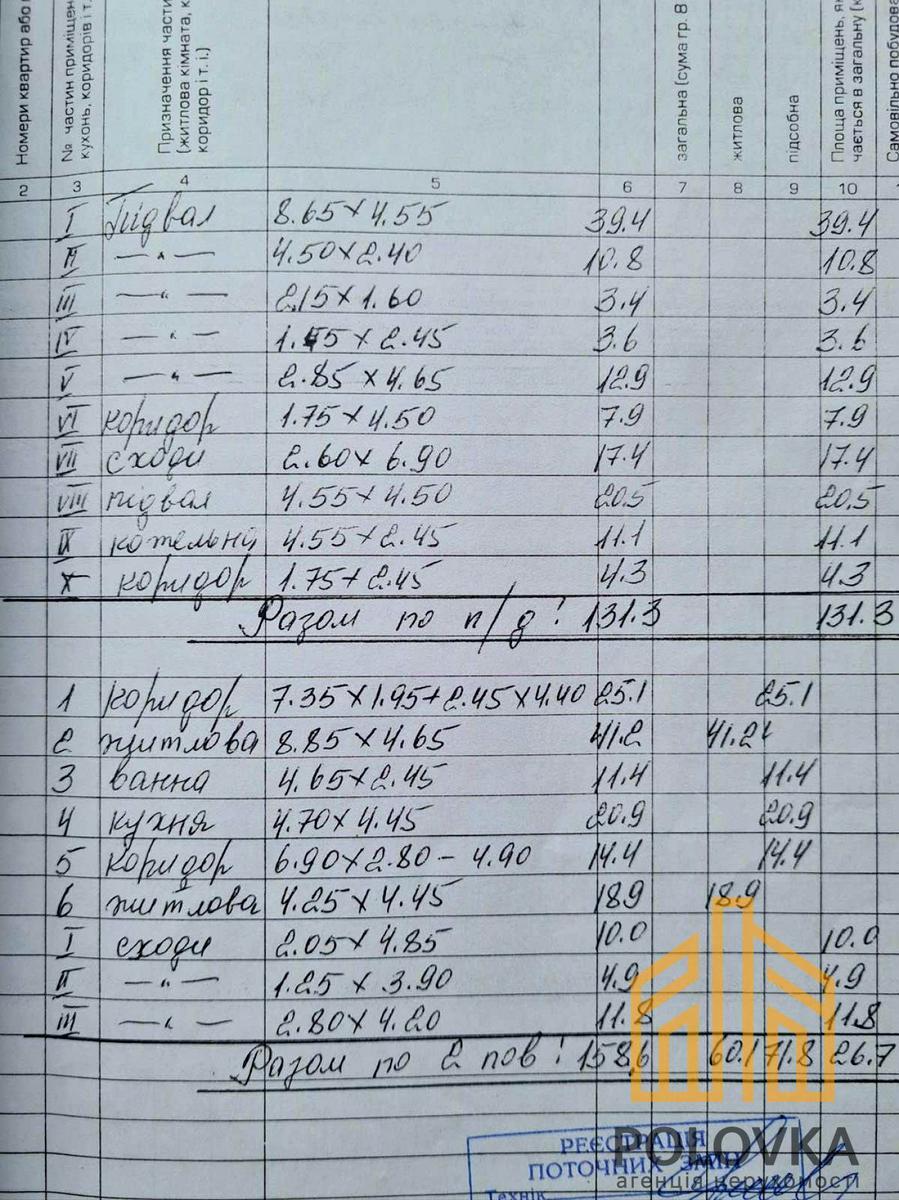 Номери квартир або
№ частин приміщен
кухонь, коридорів і т.
Призначення части
(житлова кімната, к
коридор і т. і.)
загальна (сума гр. 8
житлова
підсобна
Площа приміщень, як
чається в загальну (к
Самовільно побудова
2 3 4 5 6 7 8 9 10
I Підвал 8.65×4.55 39.4 39.4
II —"— 4.50×2.40 10.8 10.8
III —"— 2,15×1.60 3.4 3.4
IV —"— 2.45 3.6 3.6
V —"— 2.85×4.65 12.9 12.9
VI коридор 1.75×4.50 7.9 7.9
VII сходи 2.60×6.90 17.4 17.4
VIII підвал 4.55×4.50 20.5 20.5
IX котельня 4.55×2.45 11.1 11.1
X коридор 1.75+2.45 4.3 4.3
Разом по п/д: 131.3 131.3
1 коридор 7.35×1.95+2.45×4.40 25.1 25.1
2 житлова 8.85×4.65 41.2 41.2
3 ванна 4.65×2.45 11.4 11.4
4 кухня 4.70×4.45 20.9 20.9
5 коридор 6.90×2.80-4.90 14.4 14.4
6 житлова 4.25×4.45 18.9 18.9
I сходи 2.05×4.85 10.0 10.0
II —"— 1.25×3.90 4.9 4.9
III —"— 2.80×4.20 11.8 11.8
Разом по 2 пов: 158,6 60.1 71.8 26.7
РЕЄСТРАЦІЯ
ПОТОЧНИХ ЗМІН
Технік
POLOVKA
агенція нерухомості